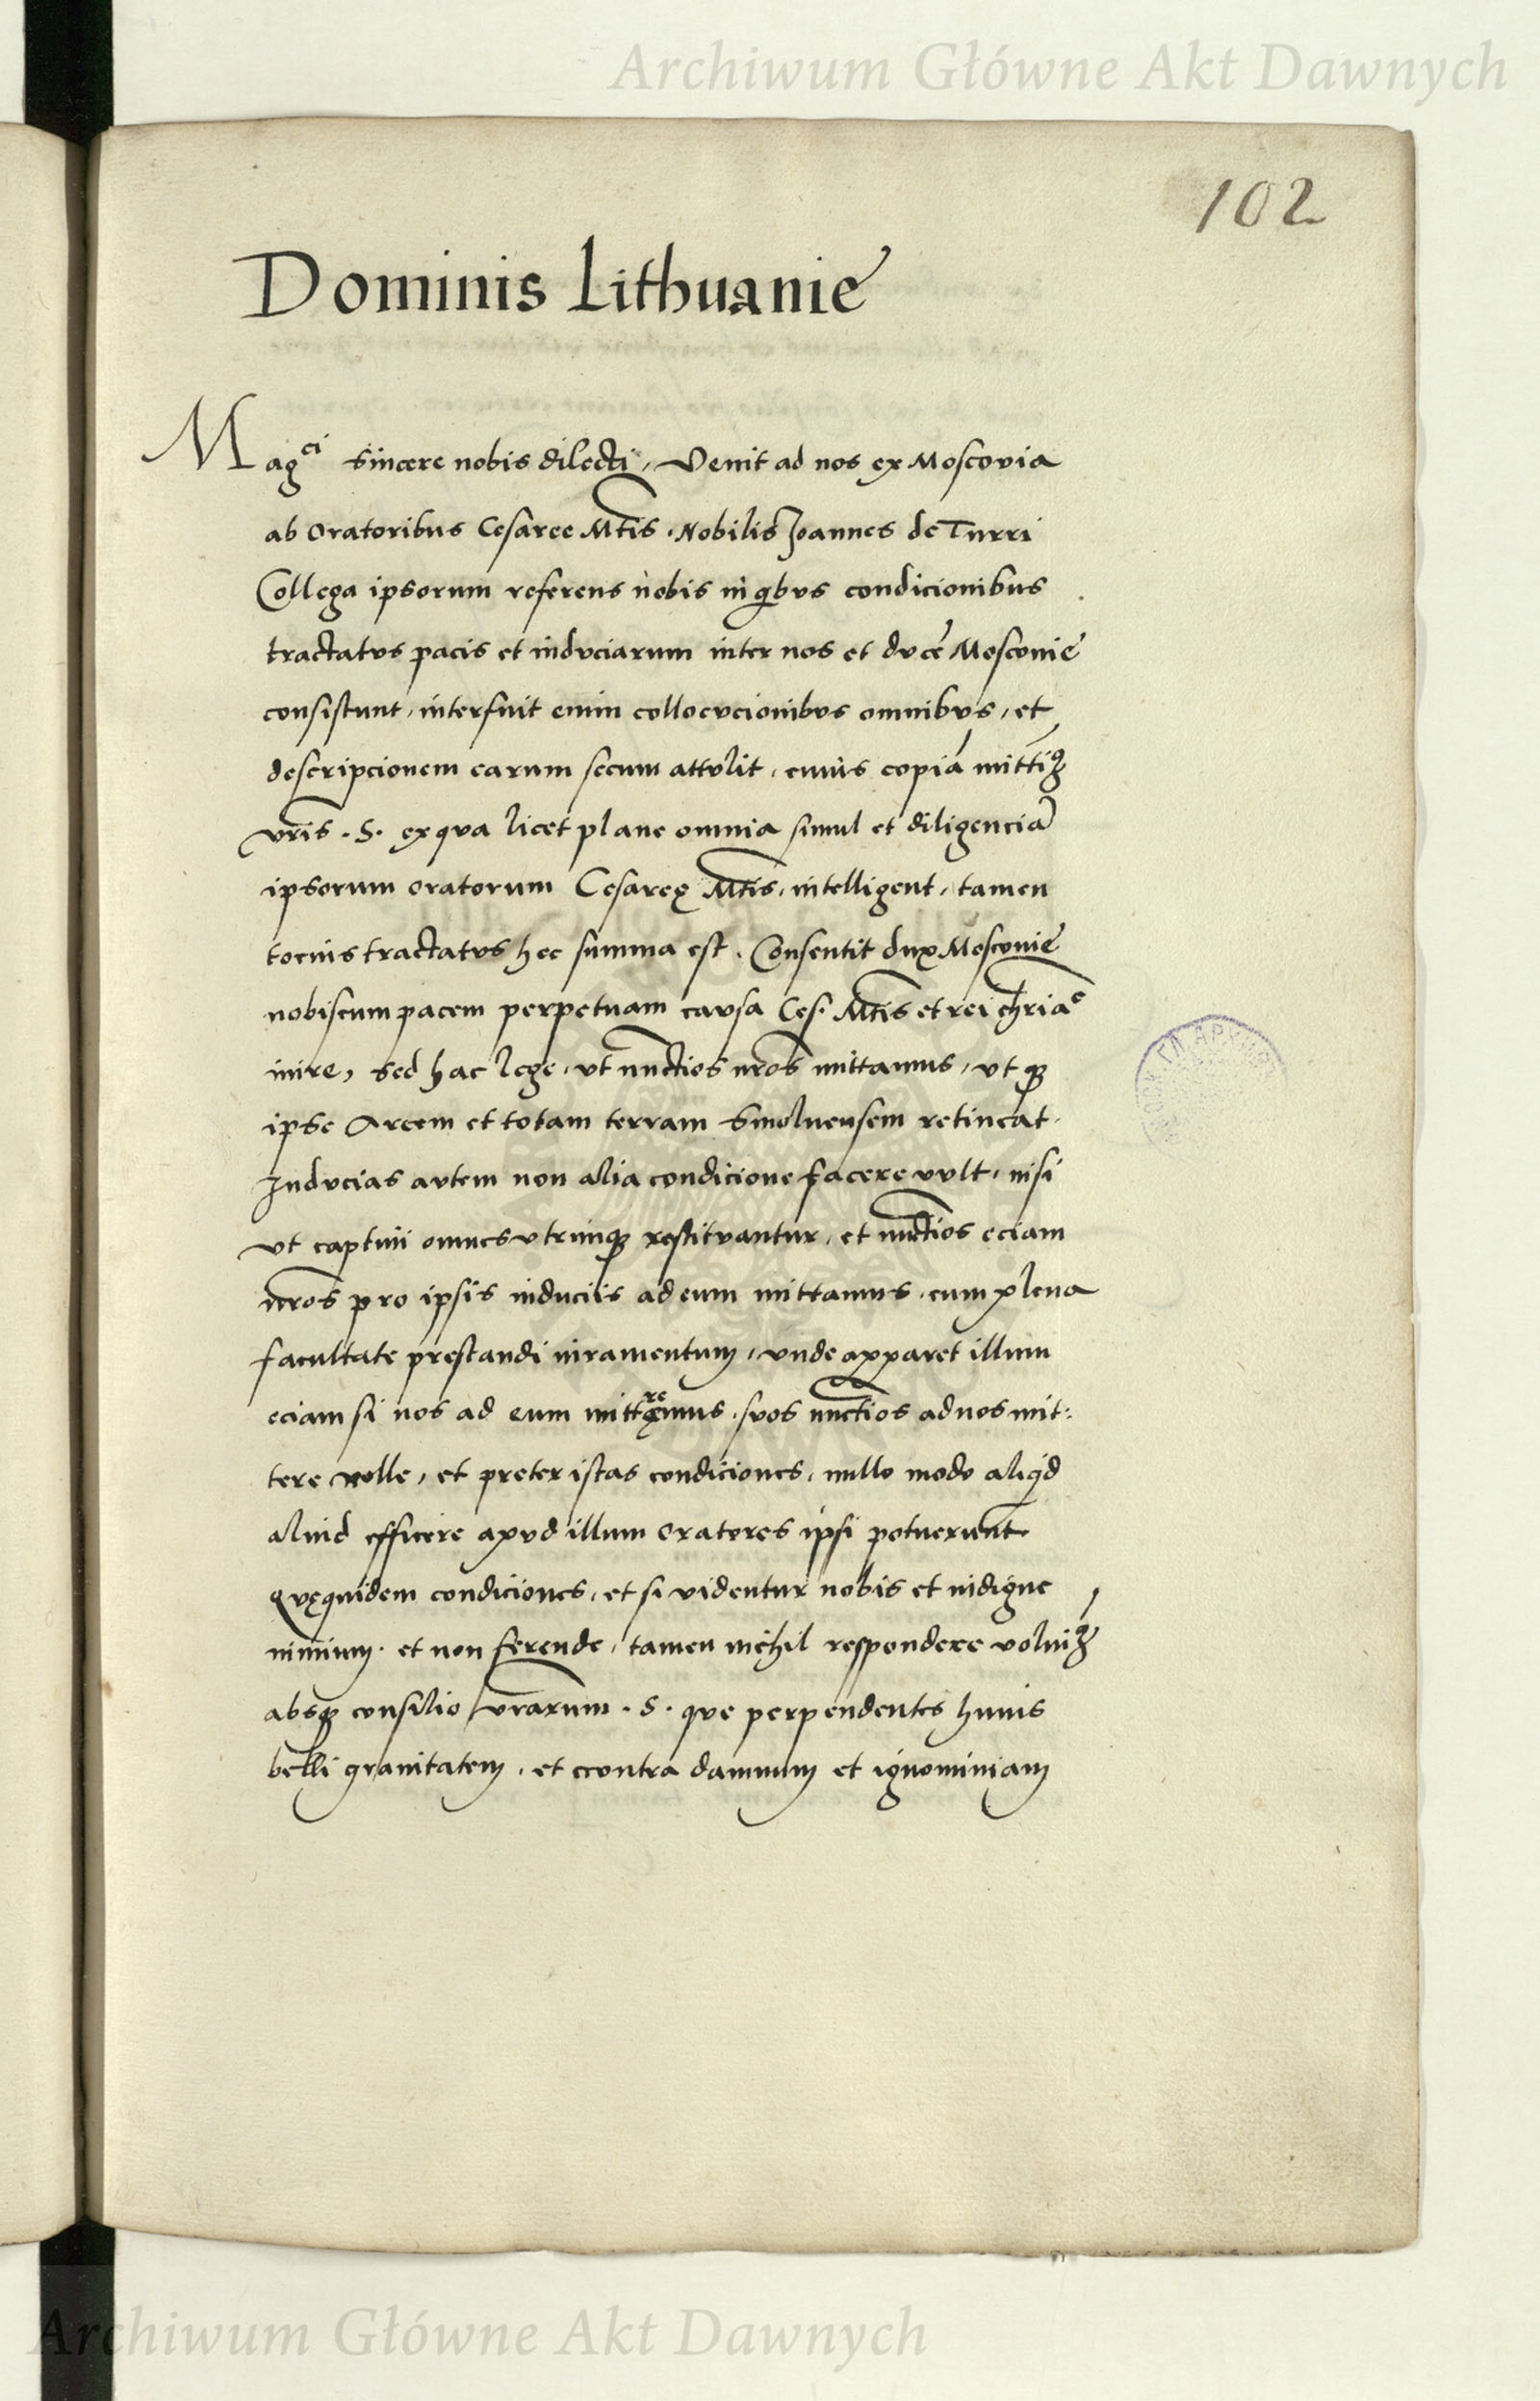 Archiwum Główne Akt Dawnych
102
Dominis Lithuanie
Mag^ci sincere nobis dilecti, Venit ad nos ex Moscovia
ab Oratoribus Cesaree Mtis. Nobilis Joannes de Turri
Collega ipsorum referens nobis in qbus condicionibus
tractatus pacis et induciarum inter nos et ducē Moscovie
consistunt, interfuit enim collocucionibus omnibus, et
descripcionem earum secum attulit, cuius copiā mittiꝫ
vr̄is. S. ex qua licet plane omnia simul et diligenciā
ipsorum oratorum Cesareę Mtis, intelligent, tamen
tocius tractatus hec summa est. Consentit dux Moscovie
nobiscum pacem perpetuam causa Ces. Mtis et rei chr̄ia^e
inire, sed hac lege, ut nuctios nr̄os mittamus, ut qꝫ
ipse Arcem et totam terram Smolnensem retineat.
Inducias autem non alia condicione facere vult, nisi
ut captivi omnes utrinqꝫ restituantur, et nuctios eciam
nr̄os pro ipsis induciis ad eum mittamus, cum plena
facultate prestandi iuramentum, unde apparet illum
eciam si nos ad eum mittremus, suos nuctios ad nos mit:
tere nolle, et preter istas condiciones, nullo modo aliqd
aliud efficere apud illum oratores ipsi potuerunt
Quęquidem condiciones, et si videntur nobis et indigne
nimium. et non ferende, tamen nichil respondere voluiꝫ
absqꝫ consilio vr̄arum. S. que perpendentes huius
belli gravitatem, et econtra damnum et ignominiam
Archiwum Główne Akt Dawnych